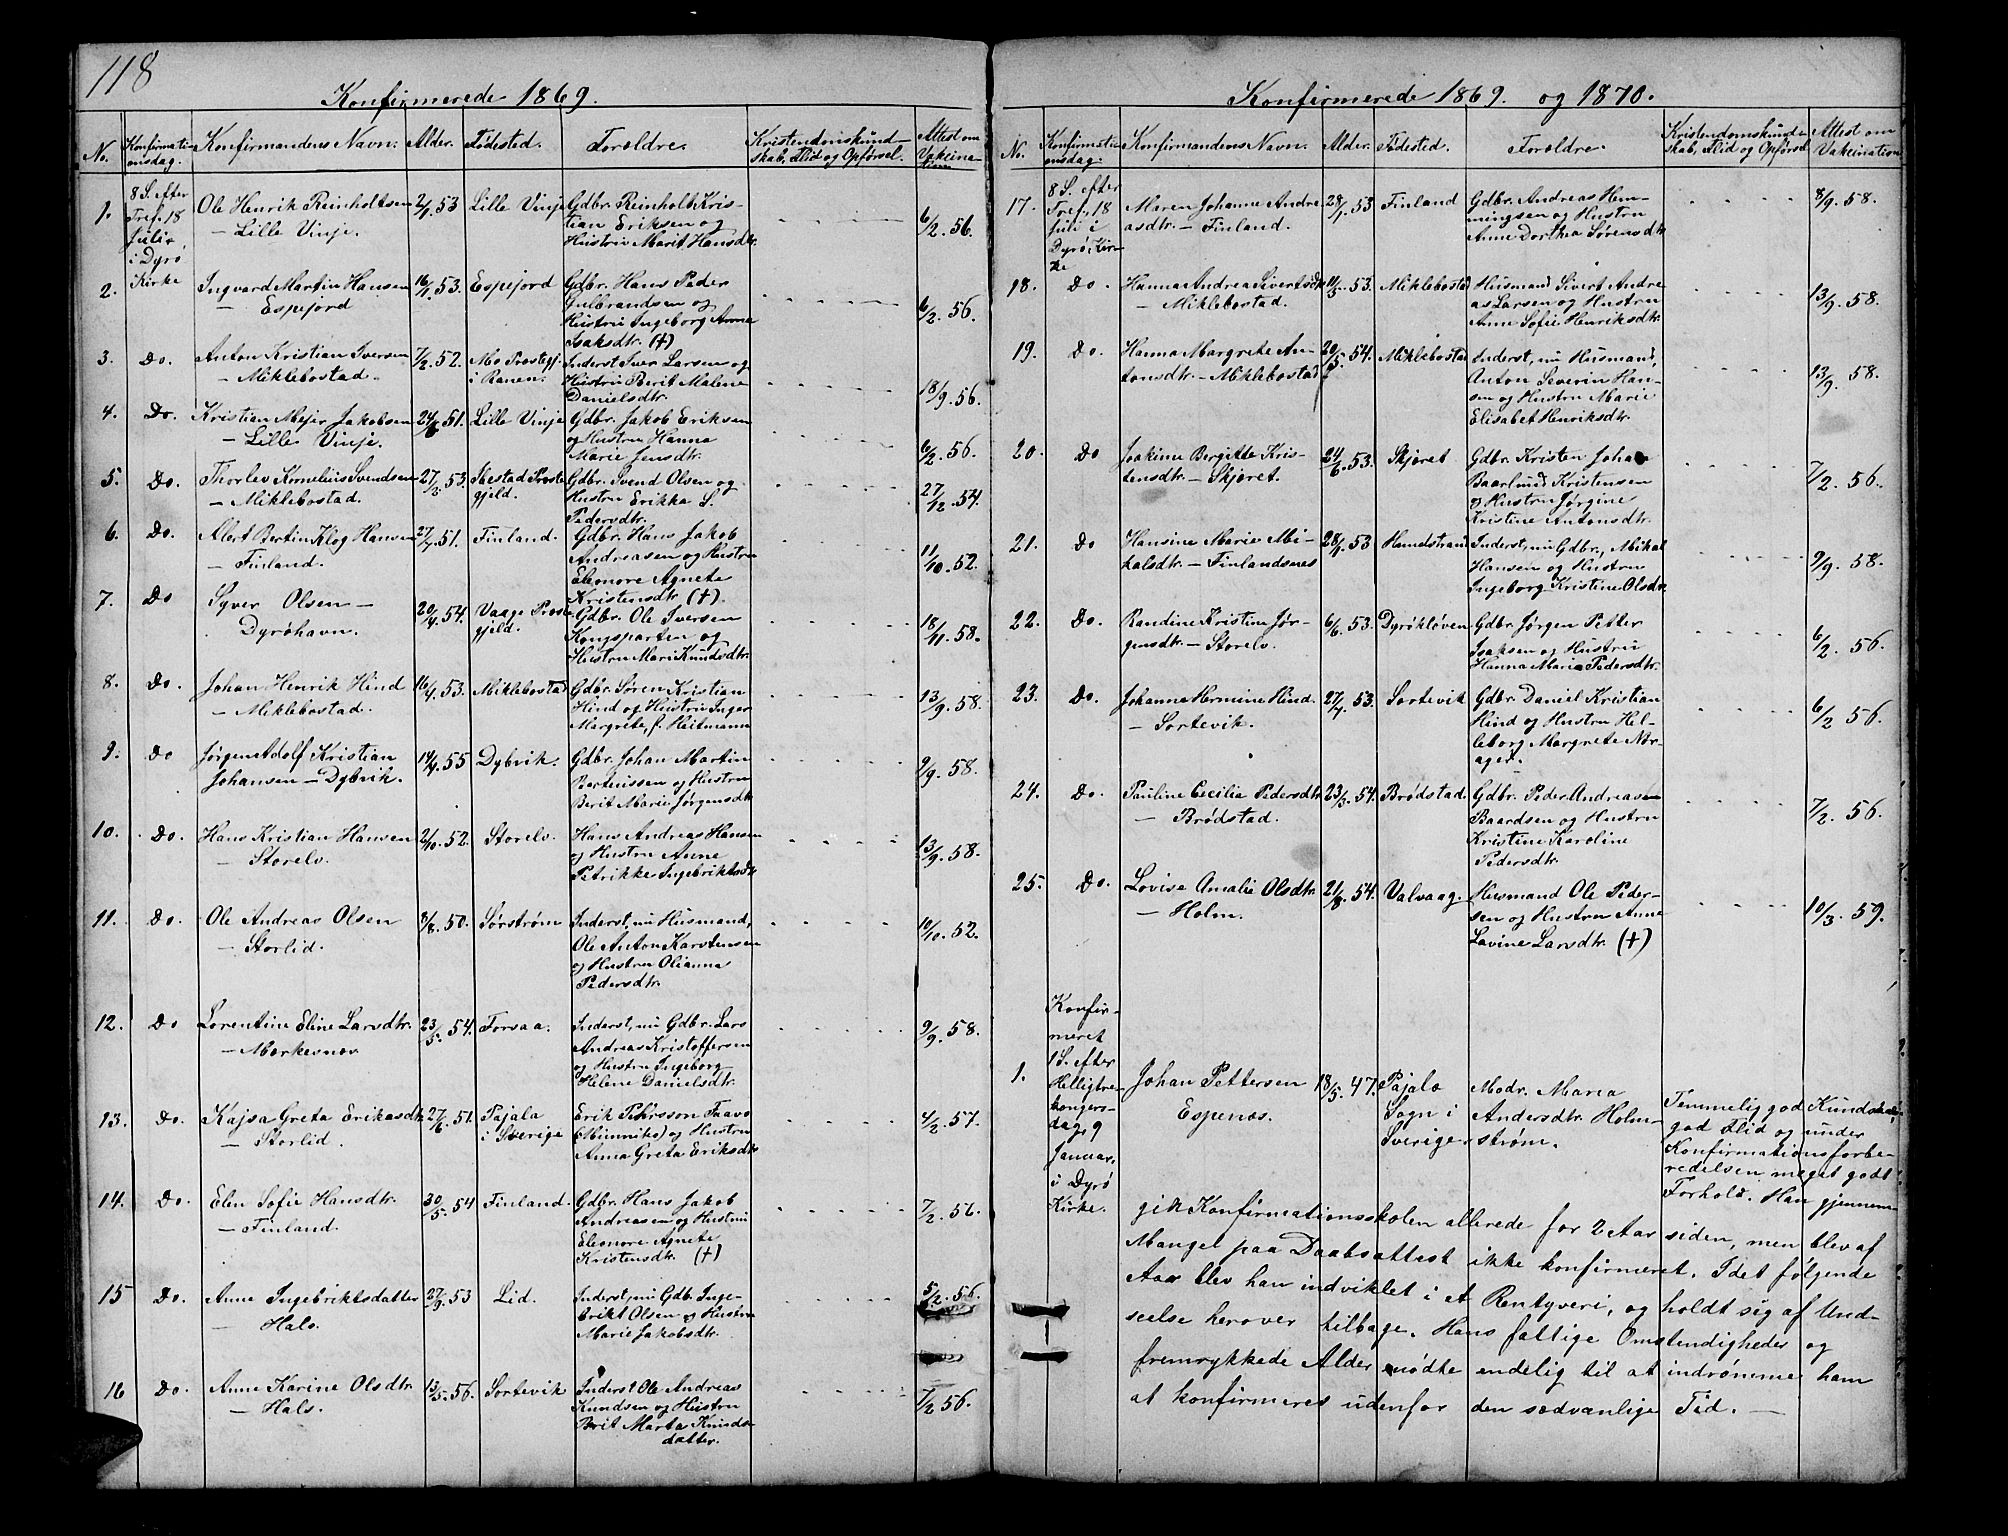 118
Konfirmerede 1869.
No.
Konfirmati-
onsdag.
Konfirmandens Navn.
Alder.
Fødested.
Forældre.
Kristendomskund-
skab, Flid og Opførsel.
Attest om
Vakcina-
tion
1.
8 S. efter
Tref. 18
Juli
i Dyrø
Kirke
Ole Henrik Reinholtsen
— Lille Vinje.
2/1. 53
Lille Vinje
Gdbr. Reinholt Kris-
tian Eriksen og
Hustru Marit Hansdtr.
6/2. 56.
2.
Ingvard Martin Hansen
— Espejord
16/1. 53.
Espejord
Gdbr. Hans Peder
Gulbrandsen og
Hustru Ingeborg Anna
Isaksdtr. (+)
6/2. 56.
3.
Do.
Anton Kristian Iversen
— Miklebostad.
7/2. 52.
Mo Prestegj.
i Ranen.
Inderst Iver Larsen og
Hustru Berit Malene
Danielsdtr.
18/9. 56.
4.
Do.
Kristian Mejer Jakobsen
— Lille Vinje.
24/6. 51.
Lille Vinje
Gdbr. Jakob Eriksen
og Hustru Hanna
Marie Jensdtr.
6/2. 56.
5.
Do.
Thorlev Kornelius Svendsen
— Miklebostad.
27/3. 53.
Ibestad Preste
gjeld.
Gdbr. Svend Olsen og
Hustru Erikka L.
Pedersdtr.
27/12. 54.
6.
Do.
Albert Bertin Klog Hansen
— Finland.
27/7. 51.
Finland.
Gdbr. Hans Jakob
Andreasen og Hustru
Eleonore Agnete
Kristensdtr. (+).
11/10. 52.
7.
Do
Syver Olsen —
Dyrøhavn.
20/4. 54.
Vaage Preste
gjeld.
Gdbr. Ole Iversen
Kongsparten og
Hustru Mari Knudsdtr.
18/11. 58.
8.
Do.
Johan Henrik Hind
— Miklebostad.
16/4. 53.
Miklebostad
Gdbr. Søren Kristian
Hind og Hustru Inger
Margrete, f. Heitmann
13/9. 58.
9.
Do
Jørgen Adolf Kristian
Johansen — Dybvik.
14/4. 55
Dybvik.
Gdbr. Johan Martin
Berteussen og Hustru
Berit Marie Jørgensdtr
9/9. 58.
10.
Do.
Hans Kristian Hansen
— Storelv.
2/10. 52.
Storelv.
Hans Andreas Hansen
og Hustru Anne
Petrikke Ingebriktsdtr
13/9. 58.
11.
Do.
Ole Andreas Olsen
— Storlid.
3/8. 50.
Sørstrøm
Inderst, nu Husmand,
Ole Anton Karstensen
og Hustru Olianna
Pedersdtr.
10/10. 52.
12.
Do
Lorentine Eline Larsdtr.
— Mærkesnæs
23/5. 54.
Forsaa.
Inderst, nu Gdbr. Lars
Andreas Kristoffersen
og Hustru Ingeborg
Helene Danielsdtr.
9/9. 58.
13.
Do.
Kajsa Greta Eriksdtr
— Storlid.
27/6. 51.
Pajala
i Sverige
Erik Pehrsson Taavo
(Minniko) og Hustru
Anna Greta Eriksdtr
4/2. 57.
14.
Do.
Elen Sofie Hansdtr.
— Finland.
30/5. 54
Finland.
Gdbr. Hans Jakob
Andreasen og Hustru
Eleonore Agnete
Kristensdtr. (+)
7/2. 56.
15
Do.
Anne Ingebriktsdatter
— Hals.
27/9. 53
Lid.
Inderst, nu Gdb. Inge-
brikt Olsen og Hustru
Marie Jakobsdtr.
5/2. 56.
16
Do.
Anne Karine Olsdtr.
— Hals.
13/5. 56.
Sørtevik
Inderst Ole Andreas
Knudsen og Hustru
Berit Marta Knuds-
datter.
7/2 56.
Konfirmerede 1869. og 1870.
No.
Konfirmati-
onsdag.
Konfirmandens Navn.
Alder.
Fødested.
Forældre.
Kristendomskund-
skab, Flid og Opførsel
Attest om
Vakcination
17.
8 S. efter
Tref. 18
Juli i
Dyrø Kir-
ke
Maren Johanne Andre
asdtr. — Finland.
28/1. 53
Finland
Gdbr. Andreas Hem-
mingsen og Hustru
Anne Dorthea Sørensdtr
8/9. 58.
18.
Do.
Hanna Andrea Sivertsdtr
— Miklebostad.
11/3. 53.
Miklebostad
Husmand Sivert Andre
as Larsen og Hustru
Anne Sofie Henriksdtr.
13/9. 58.
19.
Do.
Hanna Margrete An-
tonsdtr. — Miklebostad
20/5. 54.
Miklebostad
Inderst, nu Husmand,
Anton Severin Han-
sen og Hustru Marie
Elisabet Henriksdtr.
13/9. 58.
20.
Do
Joakime Bergitte Kris-
tensdtr. — Skjøret.
24/6. 53.
Skjøret
Gdbr. Kristen Johan
Baarlund Kristensen
og Hustru Jørgine
Kristine Antonsdtr.
7/2. 56.
21.
Do
Hansine Marie Mi-
kalsdtr. — Finlandsnes
28/1. 53
Hundstrand
Inderst, nu Gdbr., Mikal
Hansen og Hustru
Ingeborg Kristine Olsdtr.
9/9. 58.
22.
Do.
Randine Kristine Jør-
gensdtr. — Storelv.
6/6. 53.
Dyrøkløven
Gdbr Jørgen Petter
Isaksen og Hustru
Hanna Maria Pedersdtr.
6/2. 56.
23.
Do.
Johanna Hermine Hind.
— Sørtevik.
27/7. 53.
Sørtevik
Gdbr. Daniel Kristian
Hind og Hustru Hel-
leborg Margrete Nor-
ager.
6/2 56.
24.
Do.
Pauline Cecilia Pedersdtr.
— Brødstad.
23/3. 54.
Brødstad.
Gdbr. Peder Andreasen
Baardsen og Hustru
Kristine Karoline
Pedersdtr.
7/2. 56.
25.
Do.
Lovise Amalie Olsdtr.
— Holm.
21/8. 54.
Valvaag.
Husmand Ole Peder-
sen og Hustru Anne
Lavine Larsdtr. (+)
10/3. 59.
1.
Konfir-
meret
1 S. efter
Helligtre-
kongers-
dag, 9
Januar,
i Dyrø
Kirke.
Johan Pettersen
Espenæs.
18/5. 47.
Pajala
Sogn i
Sverige
Modr. Maria
Andersdtr. Holm-
strøm.
Temmelig god Kundskab,
god Flid og under
Konfirmationsforbe-
redelsen meget godt
Forhold. Han gjennem-
gik Konfirmationsskolen allerede for 2 Aar siden, men blev af
Mangel paa Daabsattest ikke konfirmeret. I det følgende
Aar blev han indviklet i et Rentyveri, og holdt sig af Und-
seelse herover tilbage. Hans fattige Omstendigheder og
fremrykkede Alder nødte endelig til at indrømme ham
at konfirmeres udenfor den sædvanlige Tid. —